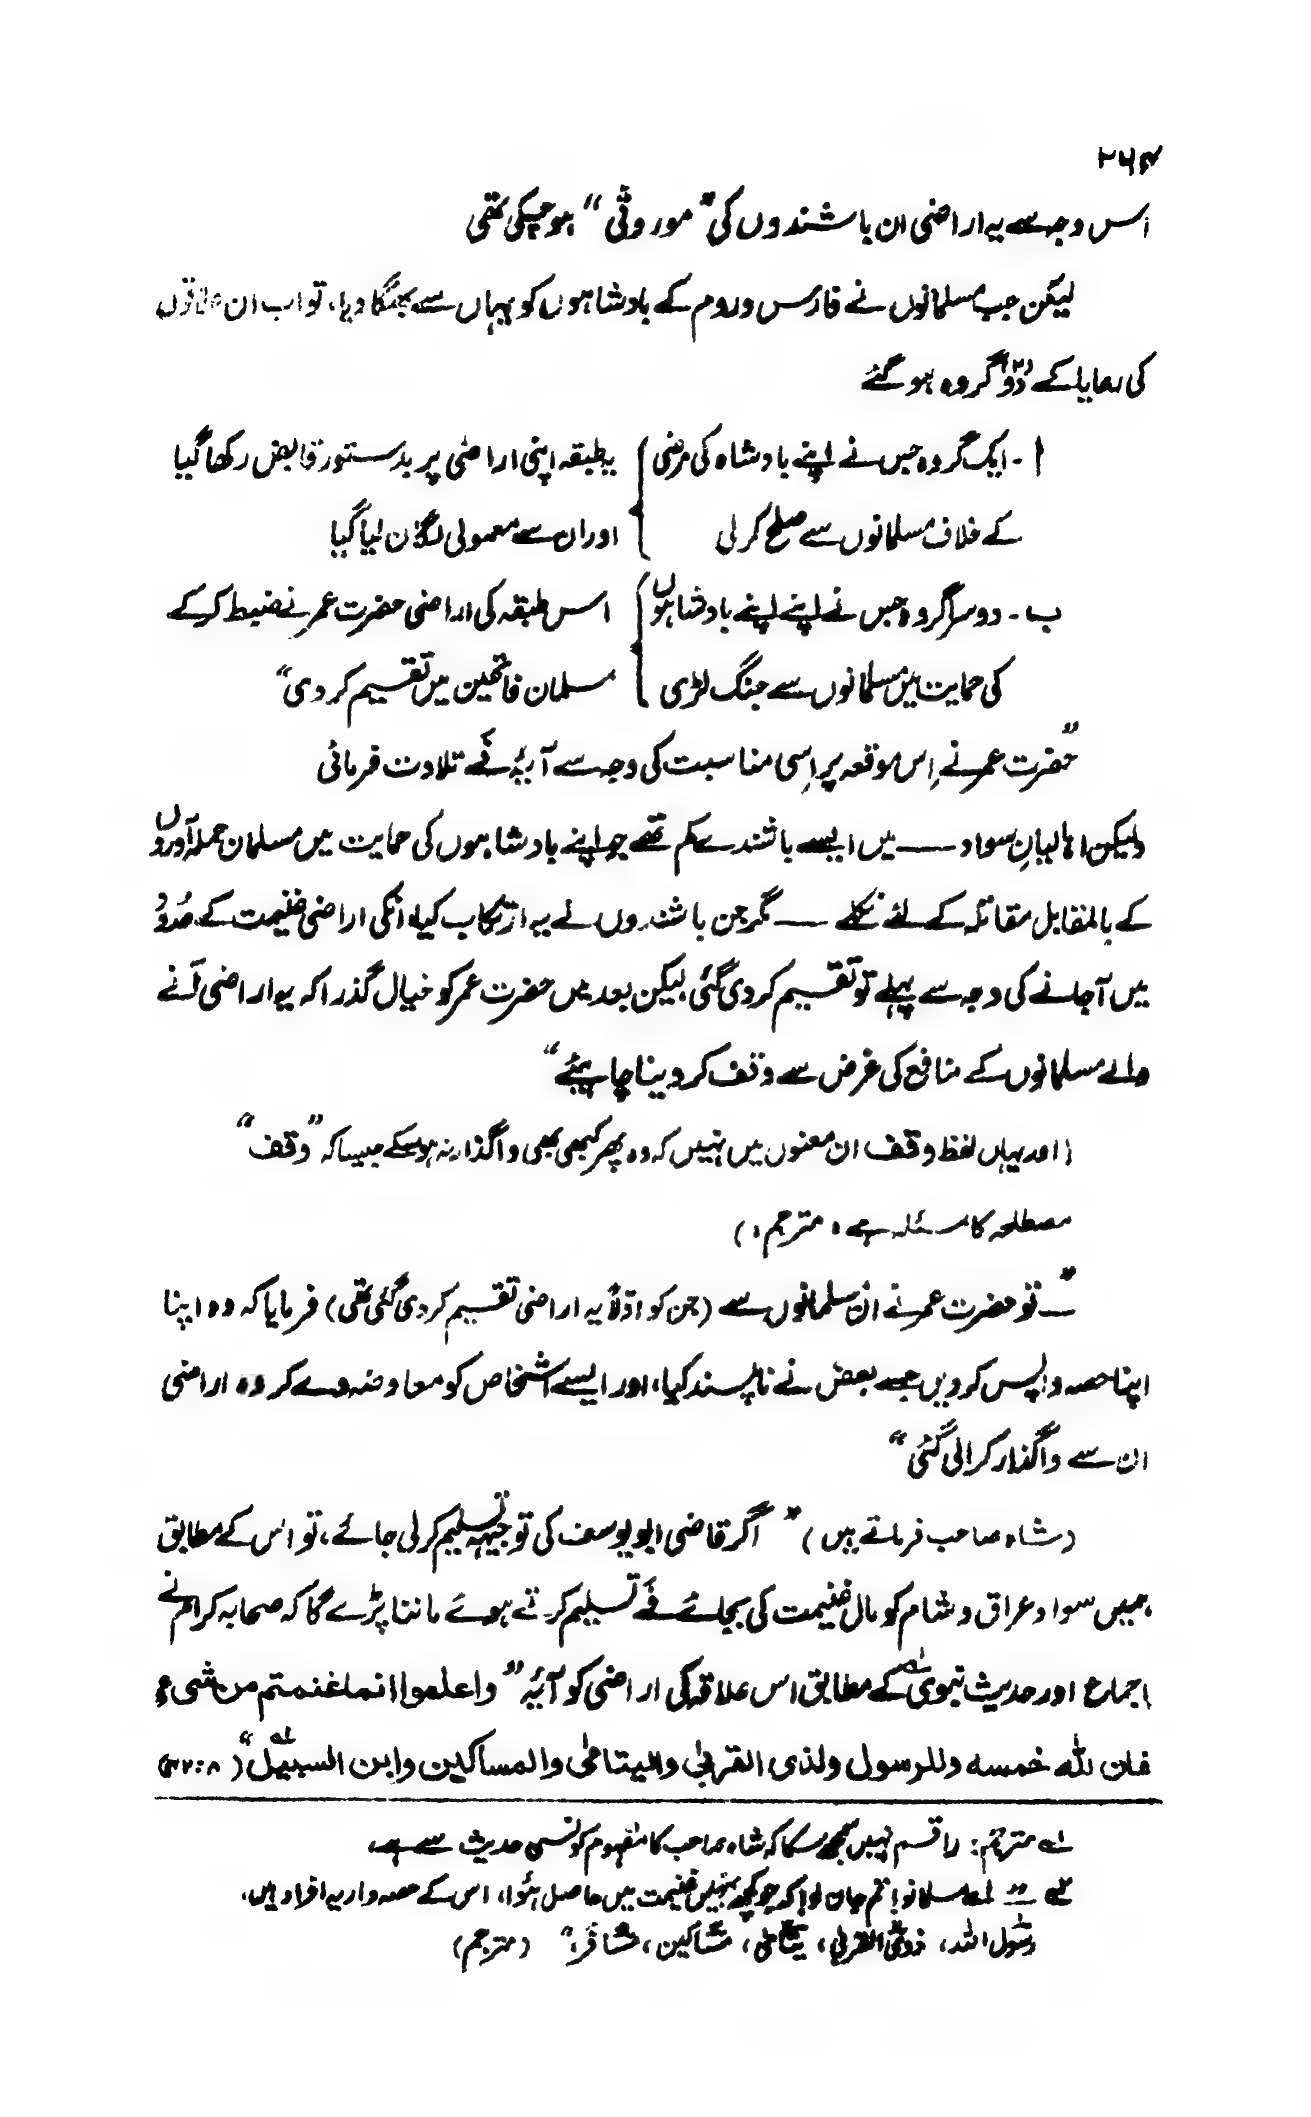 ۲۶۴
اس وجہ سے یہ اراضی ان باشندوں کی "موروثی" ہو چکی تھی
لیکن جب مسلمانوں نے فارس و روم کے بادشاہوں کو یہاں سے بھگا دیا، تو اب ان علاقوں
کی رعایا کے دو گروہ ہو گئے
ا - ایک گروہ جس نے اپنے بادشاہ کی مرضی } یہ طبقہ اپنی اراضی پر بدستور قابض رکھا گیا
کے خلاف مسلمانوں سے صلح کر لی } اور ان سے معمولی لگان لیا گیا
ب - دوسرا گروہ جس نے اپنے اپنے بادشاہوں } اس طبقہ کی اراضی حضرت عمر نے ضبط کر کے
کی حمایت میں مسلمانوں سے جنگ لڑی } مسلمان فاتحین میں تقسیم کر دی"
"حضرت عمر نے اِس موقعہ پر اِسی مناسبت کی وجہ سے آیۂ فے تلاوت فرمائی
(لیکن اہالیانِ سواد —— میں ایسے باشندے کم تھے جو اپنے بادشاہوں کی حمایت میں مسلمان حملہ آوروں
کے بالمقابل مقاتلہ کے لئے نکلے —— مگر جن باشندوں نے یہ ارتکاب کیا، انکی اراضی غنیمت کے حدود
میں آ جانے کی وجہ سے پہلے تو تقسیم کر دی گئی لیکن بعد میں حضرت عمر کو خیال گذرا کہ یہ اراضی آنے
والے مسلمانوں کے منافع کی غرض سے وقف کر دینا چاہیئے"
(اور یہاں لفظ وقف ان معنوں میں نہیں کہ وہ پھر کبھی بھی واگذار نہ ہو سکے جیسا کہ "وقف"
مصطلحہ کا مسئلہ ہے، مترجم،)
"— تو حضرت عمر نے ان مسلمانوں سے (جن کو اولاً یہ اراضی تقسیم کر دی گئی تھی) فرمایا کہ وہ اپنا
اپنا حصہ واپس کر دیں جسے بعض نے ناپسند کیا، اور ایسے اشخاص کو معاوضہ دے کر وہ اراضی
ان سے واگذار کرا لی گئی"
(شاہ صاحب فرماتے ہیں) "اگر قاضی ابو یوسف کی توجیہہ تسلیم کر لی جائے، تو اس کے مطابق
ہمیں سواد عراق و شام کو مال غنیمت کی بجائے فَے تسلیم کرتے ہوئے ماننا پڑے گا کہ صحابہ کرام نے
اجماع اور حدیث نبوی لہ کے مطابق اس علاقہ کی اراضی کو آیۂ "واعلموا انما غنمتم من شیء
فان للہ خمسہ وللرسول ولذی القربیٰ والیتامیٰ والمساکین وابن السبیل" (۸:۴۲)
لہ مترجم: راقم نہیں سمجھ سکا کہ شاہ صاحب کا مفہوم کونسی حدیث سے ہے
ٹہ " اے مسلمانو! تم جان لو! کہ جو کچھ تمہیں غنیمت میں حاصل ہُوا، اس کے حصہ دار یہ افراد ہیں،
رسول اللہ، ذوی القربیٰ، یتامیٰ، مساکین، مسافر" (مترجم)